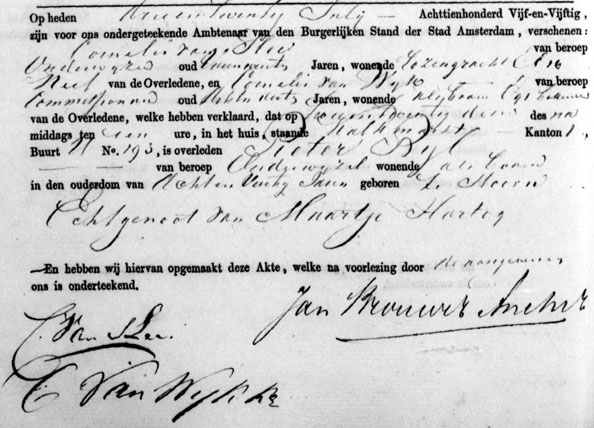 Op heden Drieentwintig July Achttienhonderd Vijf-en-Vijftig,
zijn voor ons ondergeteekende Ambtenaar van den Burgerlijken Stand der Stad Amsterdam, verschenen:
Cornelis van Slee van beroep
Onderwijzer oud Jaren, wonende Rozengracht
Neef van de Overledene, en Cornelis van Wijk van beroep
Commissionair oud Jaren, wonende
van de Overledene, welke hebben verklaard, dat op des na
middags ten een ure, in het huis, staande Kalkmarkt Kanton 1,
Buurt No. 193, is overleden Pieter Bijl
van beroep Onderwijzer wonende als boven
in den ouderdom van Achten Jaren geboren te Hoorn
Echtgenoot van Maartje Hartog
En hebben wij hiervan opgemaakt deze Akte, welke na voorlezing door de aangevers
ons is onderteekend.
Jan Brouwer Ancher
C. Van Slee.
C Van Wijk